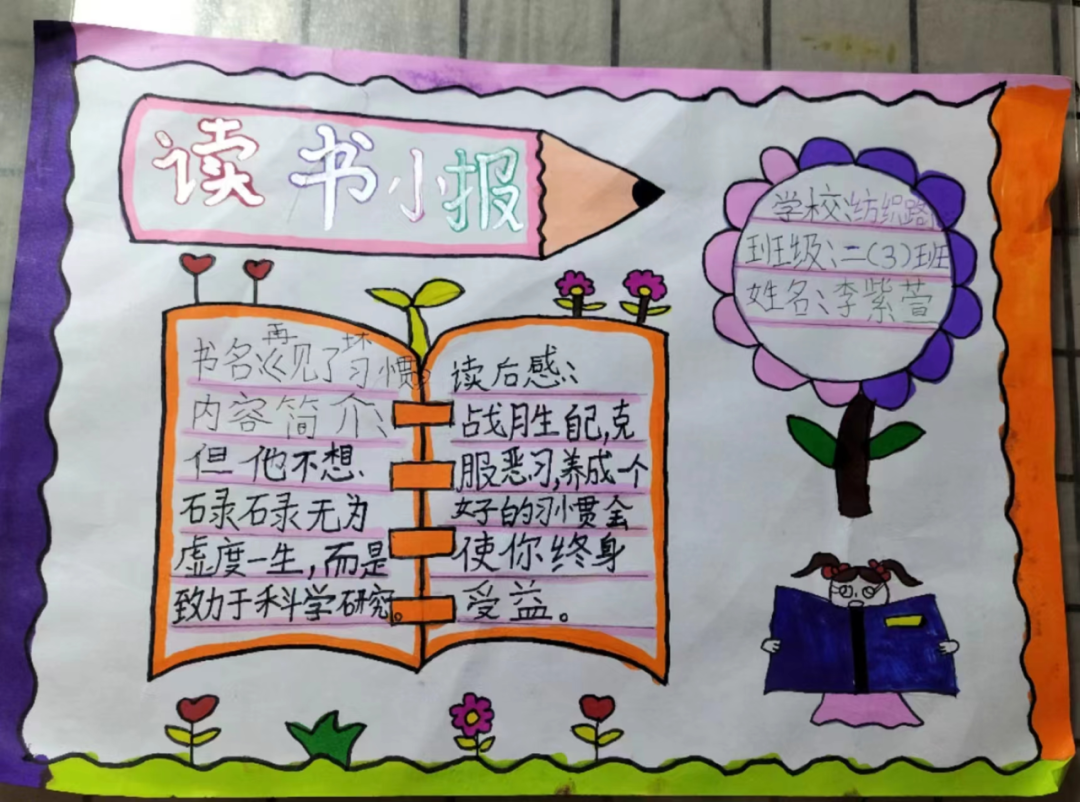 读书小报
学校:纺织路
班级:二(3)班
姓名:李紫萱
书名:《再见了坏习惯》
内容简介:
但他不想
碌碌无为
虚度一生,而是
致力于科学研究。
读后感:
战胜自己,克
服恶习,养成一个
好的习惯会
使你终身
受益。